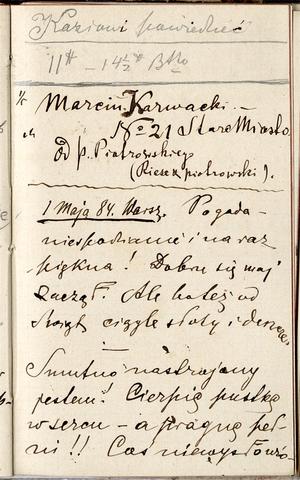 Kaziowi powiedzieć
11# – 14½# Btto
Marcin Karwacki. –
No 21 Stare Miasto
Od p. Piotrowskiego
(Riese & Piotrowski).
1 Maja 84. Warsz. Pogoda –
niespodzianie i na raz
piękna! Dobrze się maj
zaczął. Ale bo też od
ciągle słoty i deszcze.
Smutno nastrojony
jestem! Cierpię pustkę
w sercu – a pragnę peł-
ni!! Coś niewysłowio-